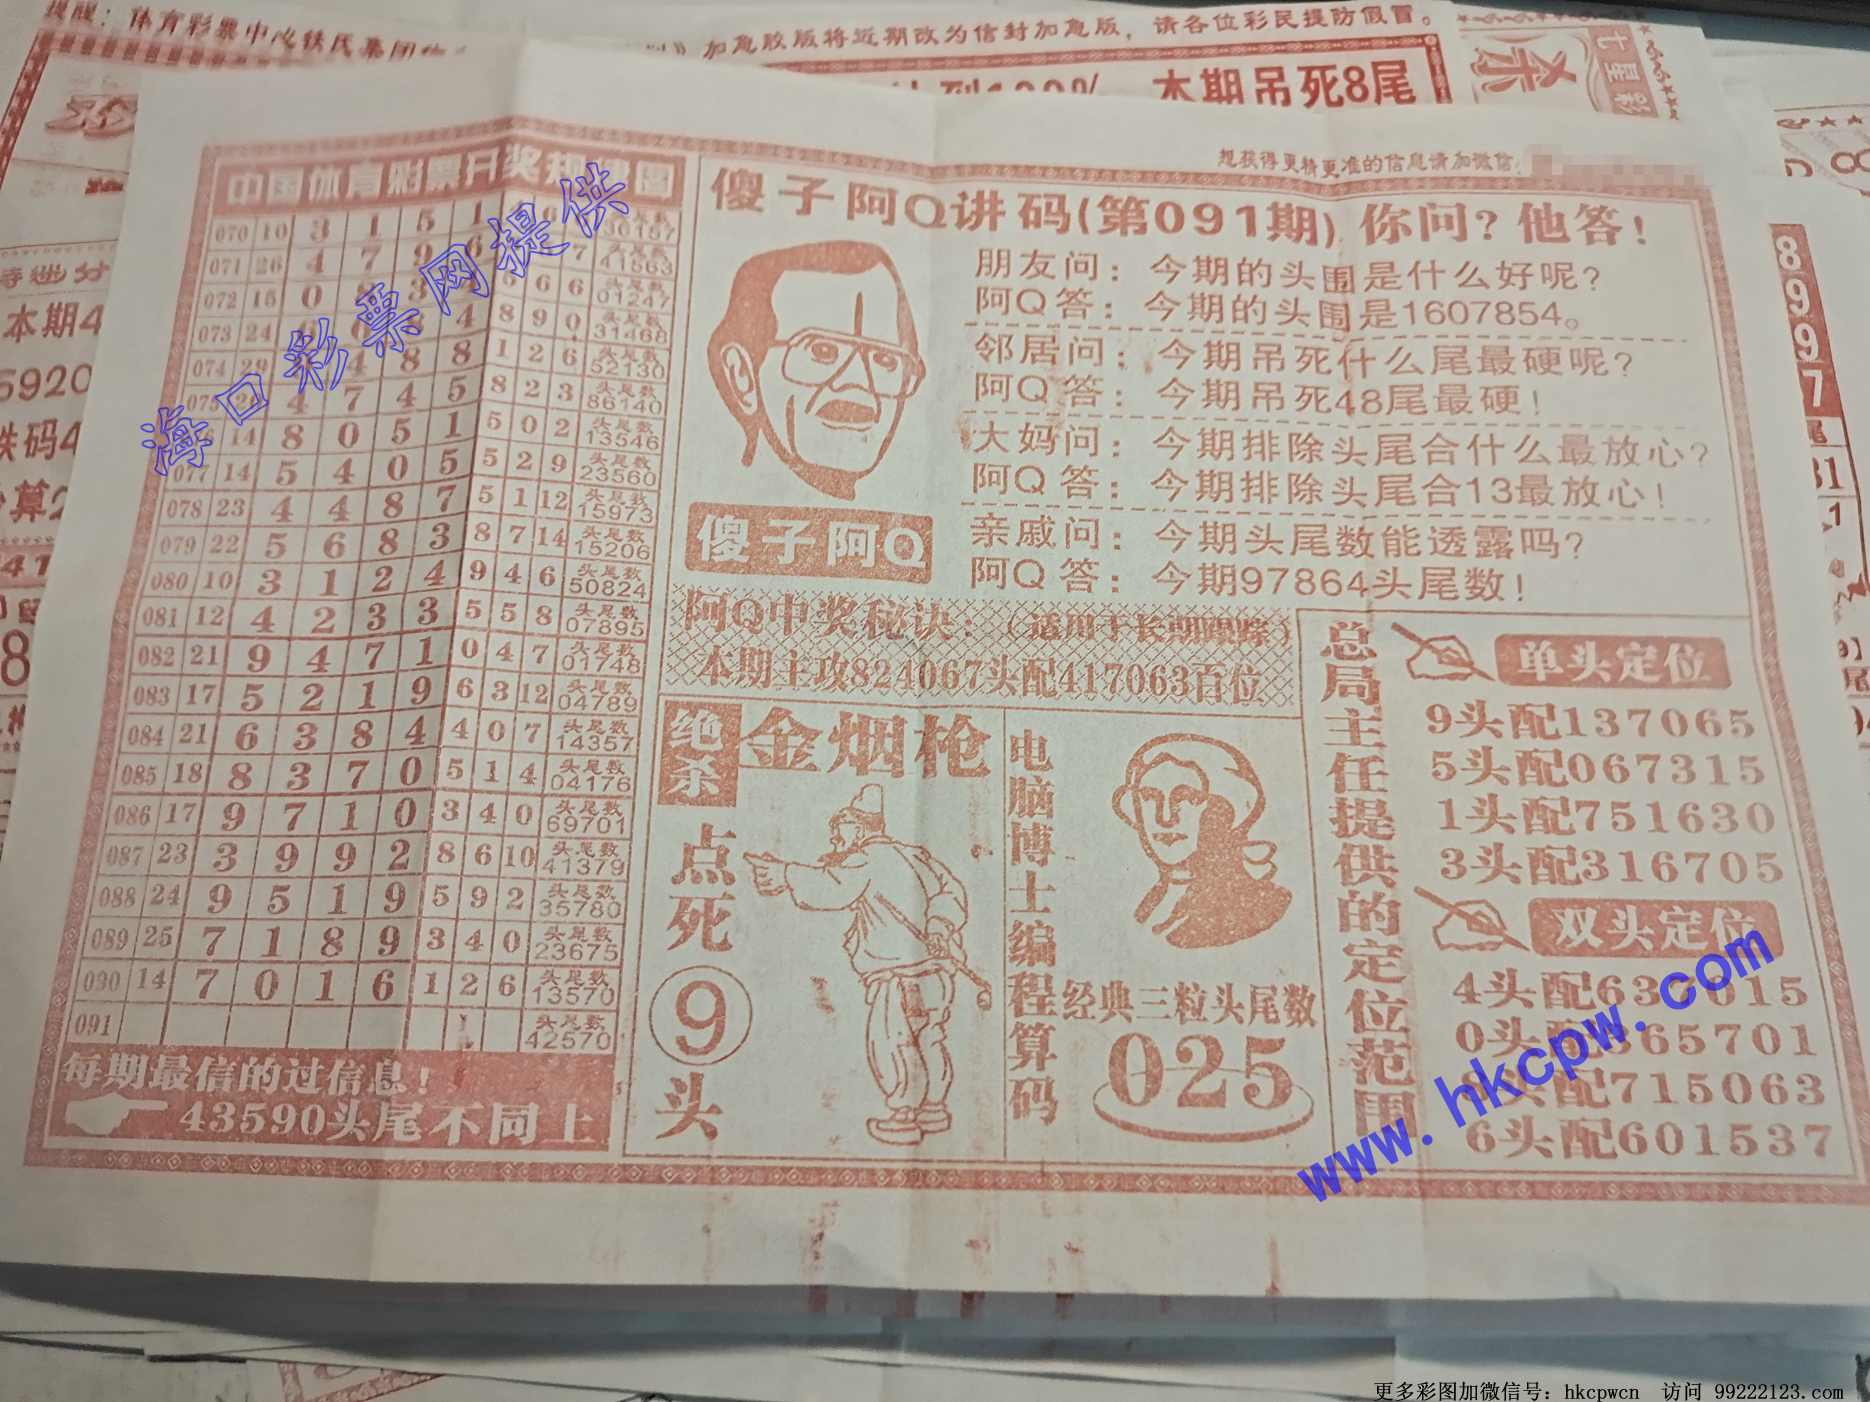 提醒：体育彩票中心铁氏集团
加急胶版将近期改为信封加急版，请各位彩民提防假冒。
本期吊死8尾
七星彩
想获得更精更准的信息请加微信：
中国体育彩票开奖规律图
070 10 3 1 5 1
071 26 4 7 9 6 7 头尾数 41563
072 15 0 6 6 头尾数 01247
073 24 4 8 9 0 头尾数 31468
074 4 8 8 1 2 6 头尾数 52130
075 4 7 4 5 8 2 3 头尾数 86140
14 8 0 5 1 5 0 2 头尾数 13546
077 14 5 4 0 5 5 2 9 头尾数 23560
078 23 4 4 8 7 5 1 12 头尾数 15973
079 22 5 6 8 3 8 7 14 头尾数 15206
080 10 3 1 2 4 9 4 6 头尾数 50824
081 12 4 2 3 3 5 5 8 头尾数 07895
082 21 9 4 7 1 0 4 7 头尾数 01748
083 17 5 2 1 9 6 3 12 头尾数 04789
084 21 6 3 8 4 4 0 7 头尾数 14357
085 18 8 3 7 0 5 1 4 头尾数 04176
086 17 9 7 1 0 3 4 0 头尾数 69701
087 23 3 9 9 2 8 6 10 头尾数 41379
088 24 9 5 1 9 5 9 2 头尾数 35780
089 25 7 1 8 9 3 4 0 头尾数 23675
030 14 7 0 1 6 1 2 6 头尾数 13570
091 头尾数 42570
每期最信的过信息！
43590头尾不同上
傻子阿Q讲码(第091期) 你问？他答！
朋友问：今期的头围是什么好呢？
阿Q答：今期的头围是1607854。
邻居问：今期吊死什么尾最硬呢？
阿Q答：今期吊死48尾最硬！
大妈问：今期排除头尾合什么最放心？
阿Q答：今期排除头尾合13最放心！
亲戚问：今期头尾数能透露吗？
阿Q答：今期97864头尾数！
傻子阿Q
阿Q中奖秘诀：（适用于长期跟踪）
本期主攻824067头配417063百位
绝杀
金烟枪
点死
9
头
电脑博士编程算码
经典三粒头尾数
025
总局主任提供的定位范围
单头定位
9头配137065
5头配067315
1头配751630
3头配316705
双头定位
4头配637015
0头配365701
头配715063
6头配601537
海口彩票网提供
www.hkcpw.com
更多彩图加微信号：hkcpwcn 访问 99222123.com